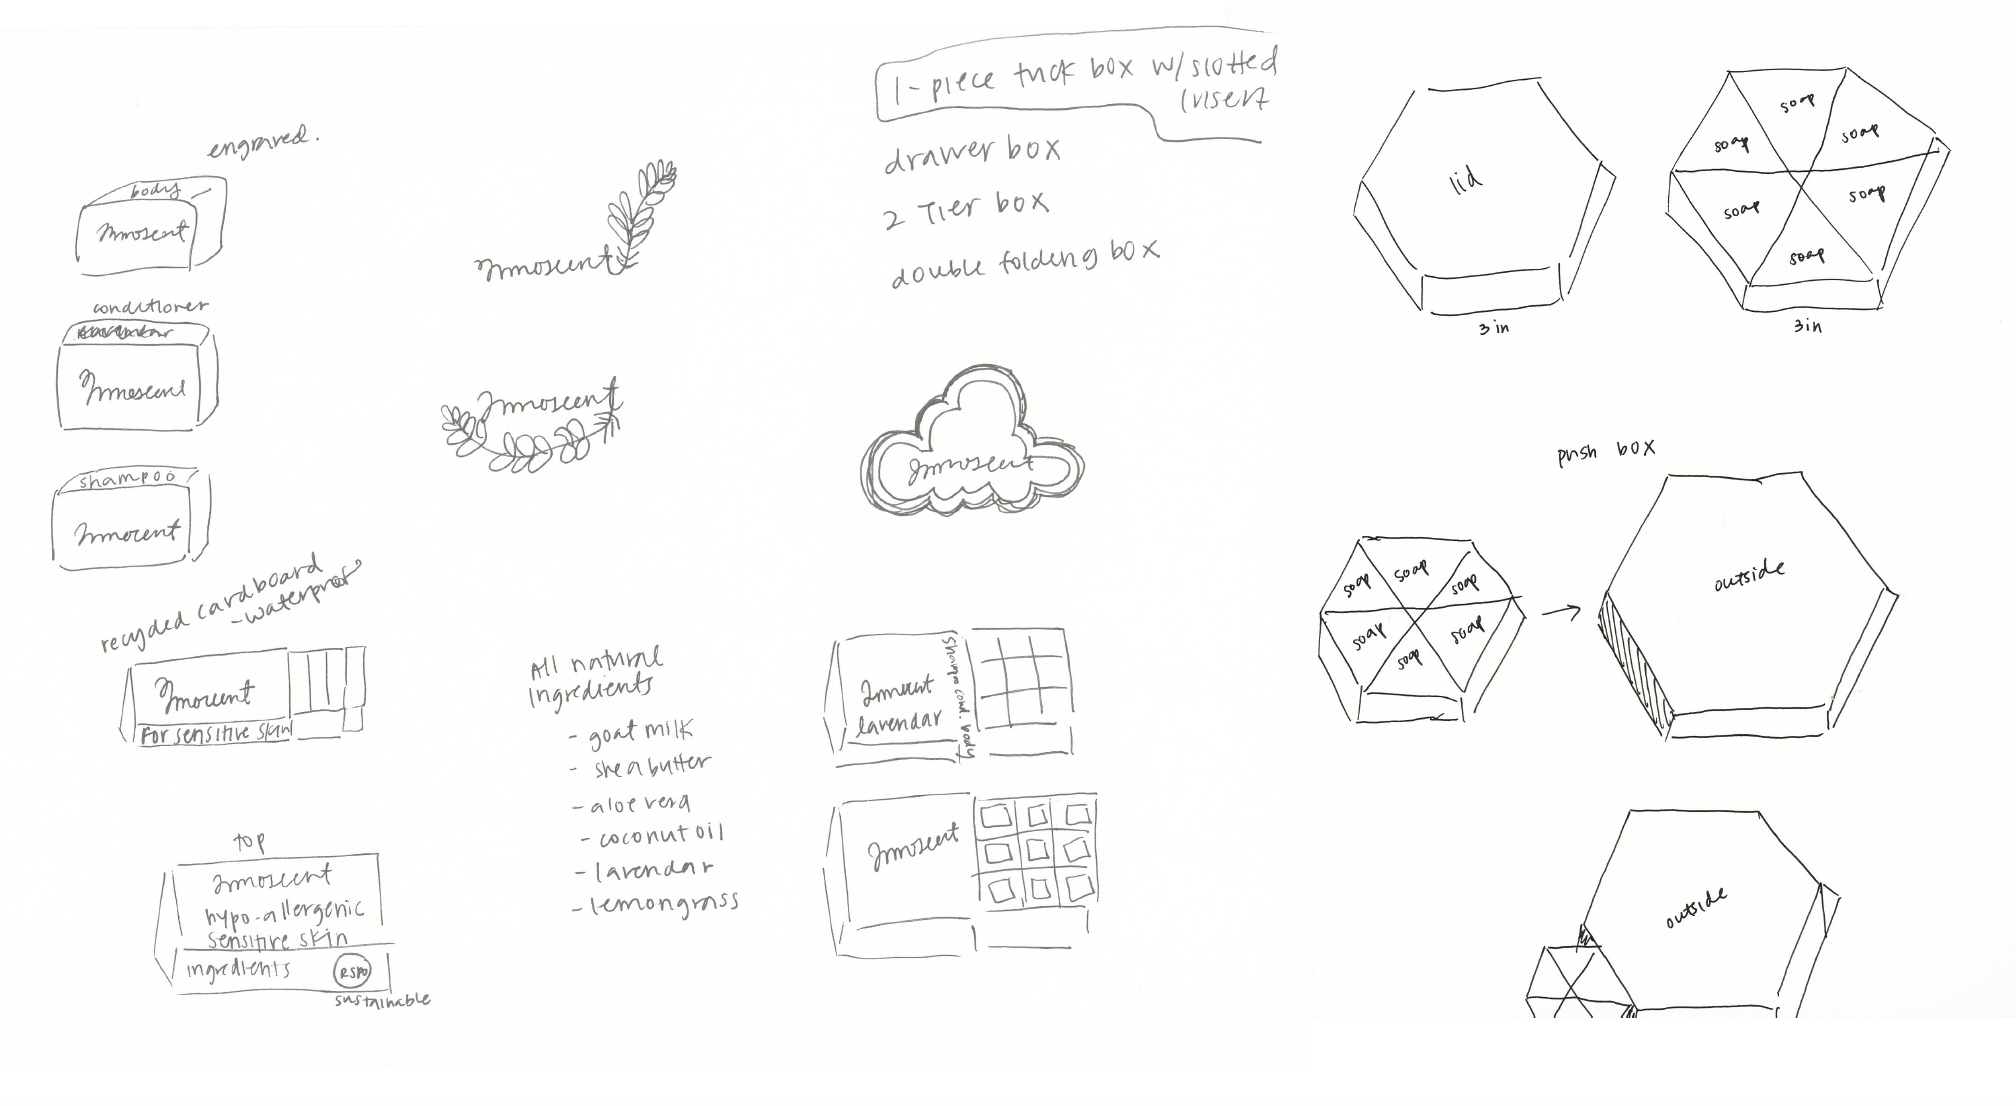 engraved.
body
Innoscent
conditioner
Innoscent
shampoo
Innoscent
recycled cardboard
-waterproof
Innoscent
For sensitive skin
top
Innoscent
hypo-allergenic
sensitive skin
ingredients
RSPO
sustainable
Innoscent
Innoscent
All natural
ingredients
- goat milk
- shea butter
- aloe vera
- coconut oil
- lavendar
- lemongrass
1-piece tuck box w/slotted
insert
drawer box
2 Tier box
double folding box
Innoscent
Innoscent
lavendar
shampoo cond. body
Innoscent
lid
3 in
soap
soap
soap
soap
soap
soap
3 in
push box
soap
soap
soap
soap
soap
soap
outside
outside